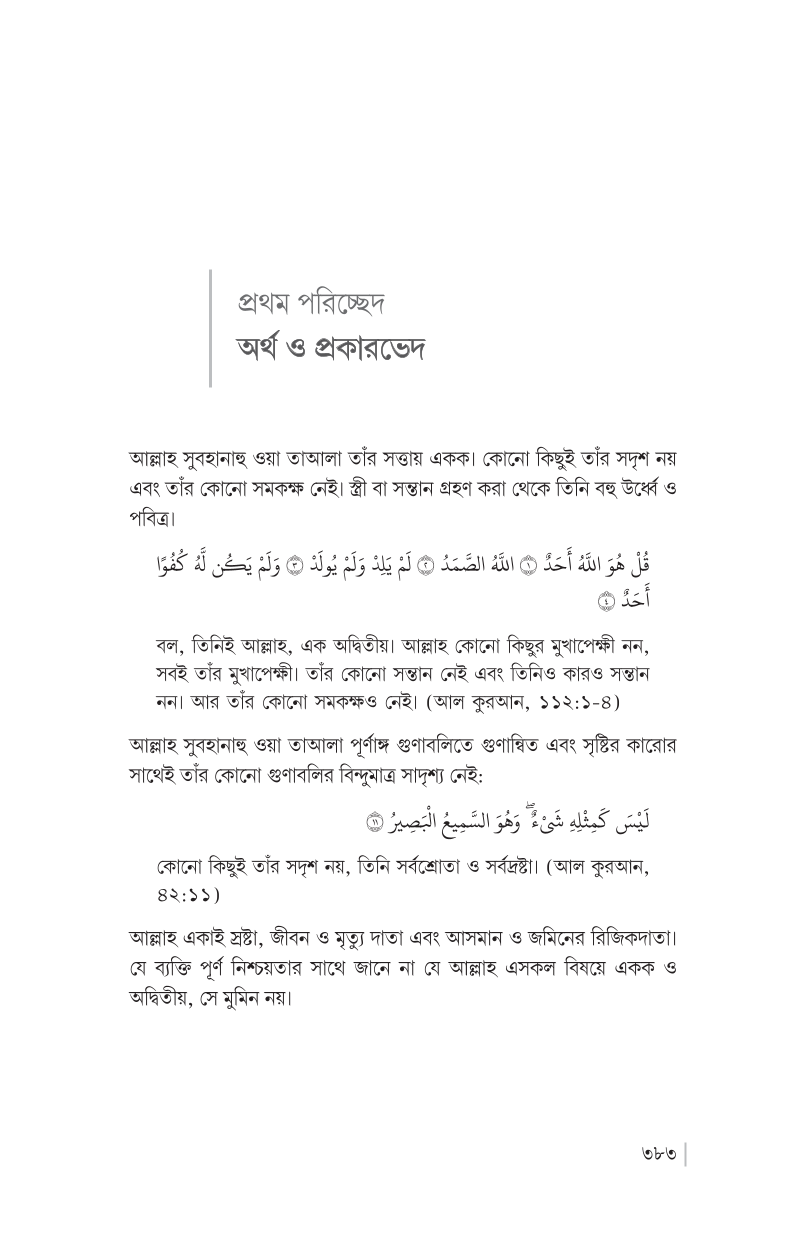 প্রথম পরিচ্ছেদ
অর্থ ও প্রকারভেদ
আল্লাহ সুবহানাহু ওয়া তাআলা তাঁর সত্তায় একক। কোনো কিছুই তাঁর সদৃশ নয়
এবং তাঁর কোনো সমকক্ষ নেই। স্ত্রী বা সন্তান গ্রহণ করা থেকে তিনি বহু উর্ধ্বে ও
পবিত্র।
قُلْ هُوَ اللَّهُ أَحَدٌ ۝١ اللَّهُ الصَّمَدُ ۝٢ لَمْ يَلِدْ وَلَمْ يُولَدْ ۝٣ وَلَمْ يَكُن لَّهُ كُفُوًا
أَحَدٌ ۝٤
বল, তিনিই আল্লাহ, এক অদ্বিতীয়। আল্লাহ কোনো কিছুর মুখাপেক্ষী নন,
সবই তাঁর মুখাপেক্ষী। তাঁর কোনো সন্তান নেই এবং তিনিও কারও সন্তান
নন। আর তাঁর কোনো সমকক্ষও নেই। (আল কুরআন, ১১২:১-৪)
আল্লাহ সুবহানাহু ওয়া তাআলা পূর্ণাঙ্গ গুণাবলিতে গুণান্বিত এবং সৃষ্টির কারোর
সাথেই তাঁর কোনো গুণাবলির বিন্দুমাত্র সাদৃশ্য নেই:
لَيْسَ كَمِثْلِهِ شَيْءٌ ۖ وَهُوَ السَّمِيعُ الْبَصِيرُ ۝١١
কোনো কিছুই তাঁর সদৃশ নয়, তিনি সর্বশ্রোতা ও সর্বদ্রষ্টা। (আল কুরআন,
৪২:১১)
আল্লাহ একাই স্রষ্টা, জীবন ও মৃত্যু দাতা এবং আসমান ও জমিনের রিজিকদাতা।
যে ব্যক্তি পূর্ণ নিশ্চয়তার সাথে জানে না যে আল্লাহ এসকল বিষয়ে একক ও
অদ্বিতীয়, সে মুমিন নয়।
৩৮৩